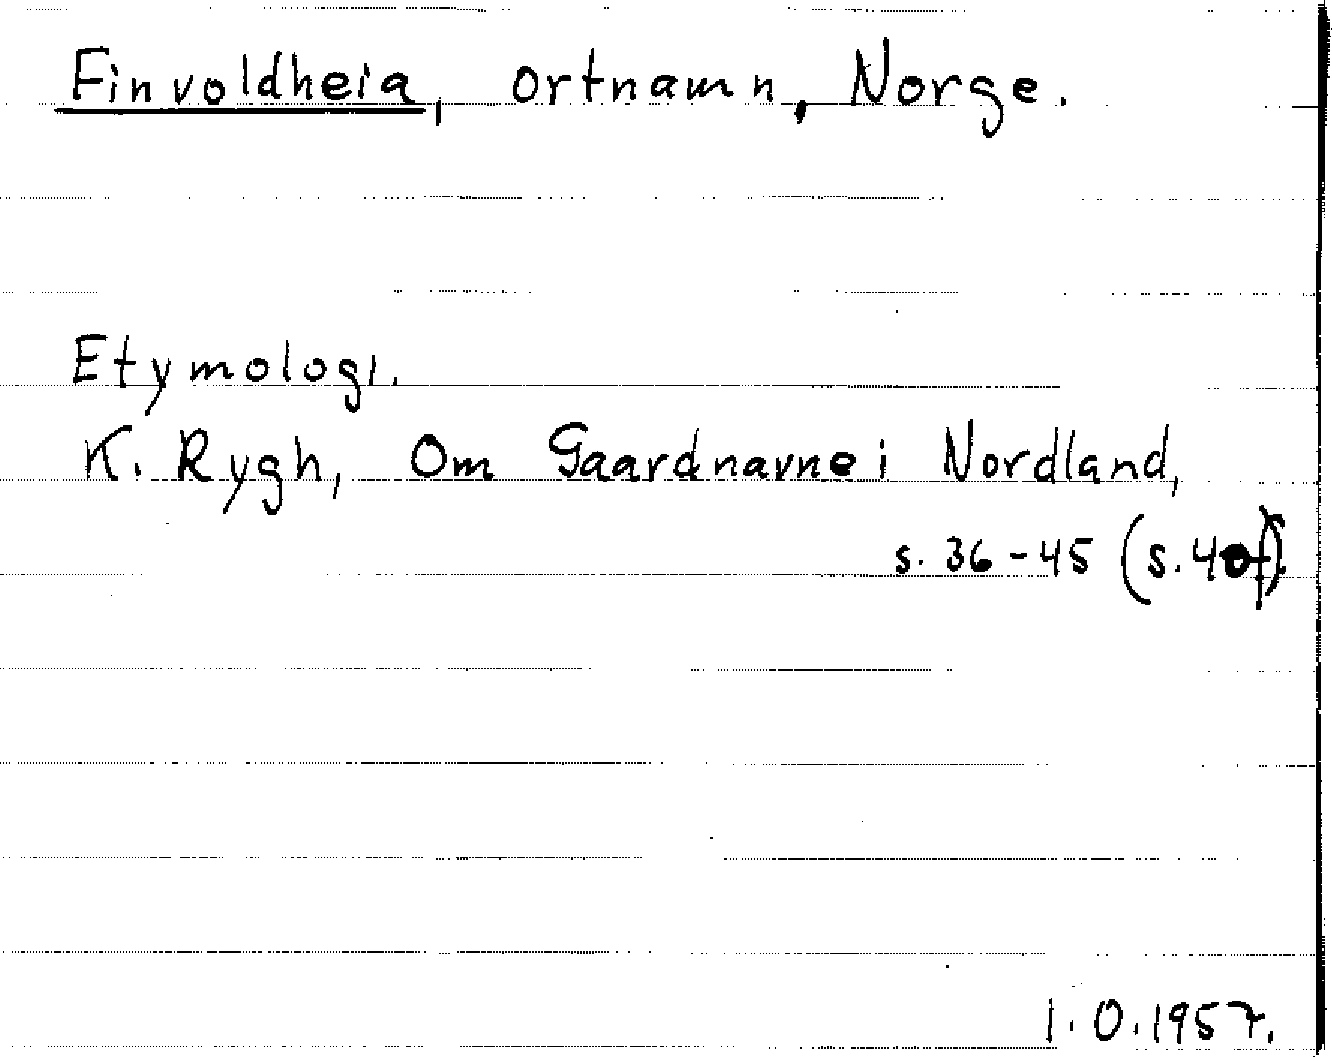 Finvoldheia, ortnamn, Norge.
Etymologi.
K. Rygh, Om Gaardnavne i Nordland,
s. 36-45 (s. 40f).
I.O.1957.